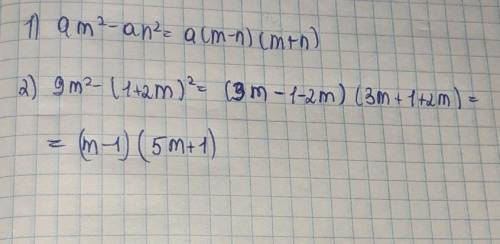 1) am² - an² = a(m-n)(m+n)
2) 9m² - (1+2m)² = (3m-1-2m)(3m+1+2m) =
= (m-1)(5m+1)